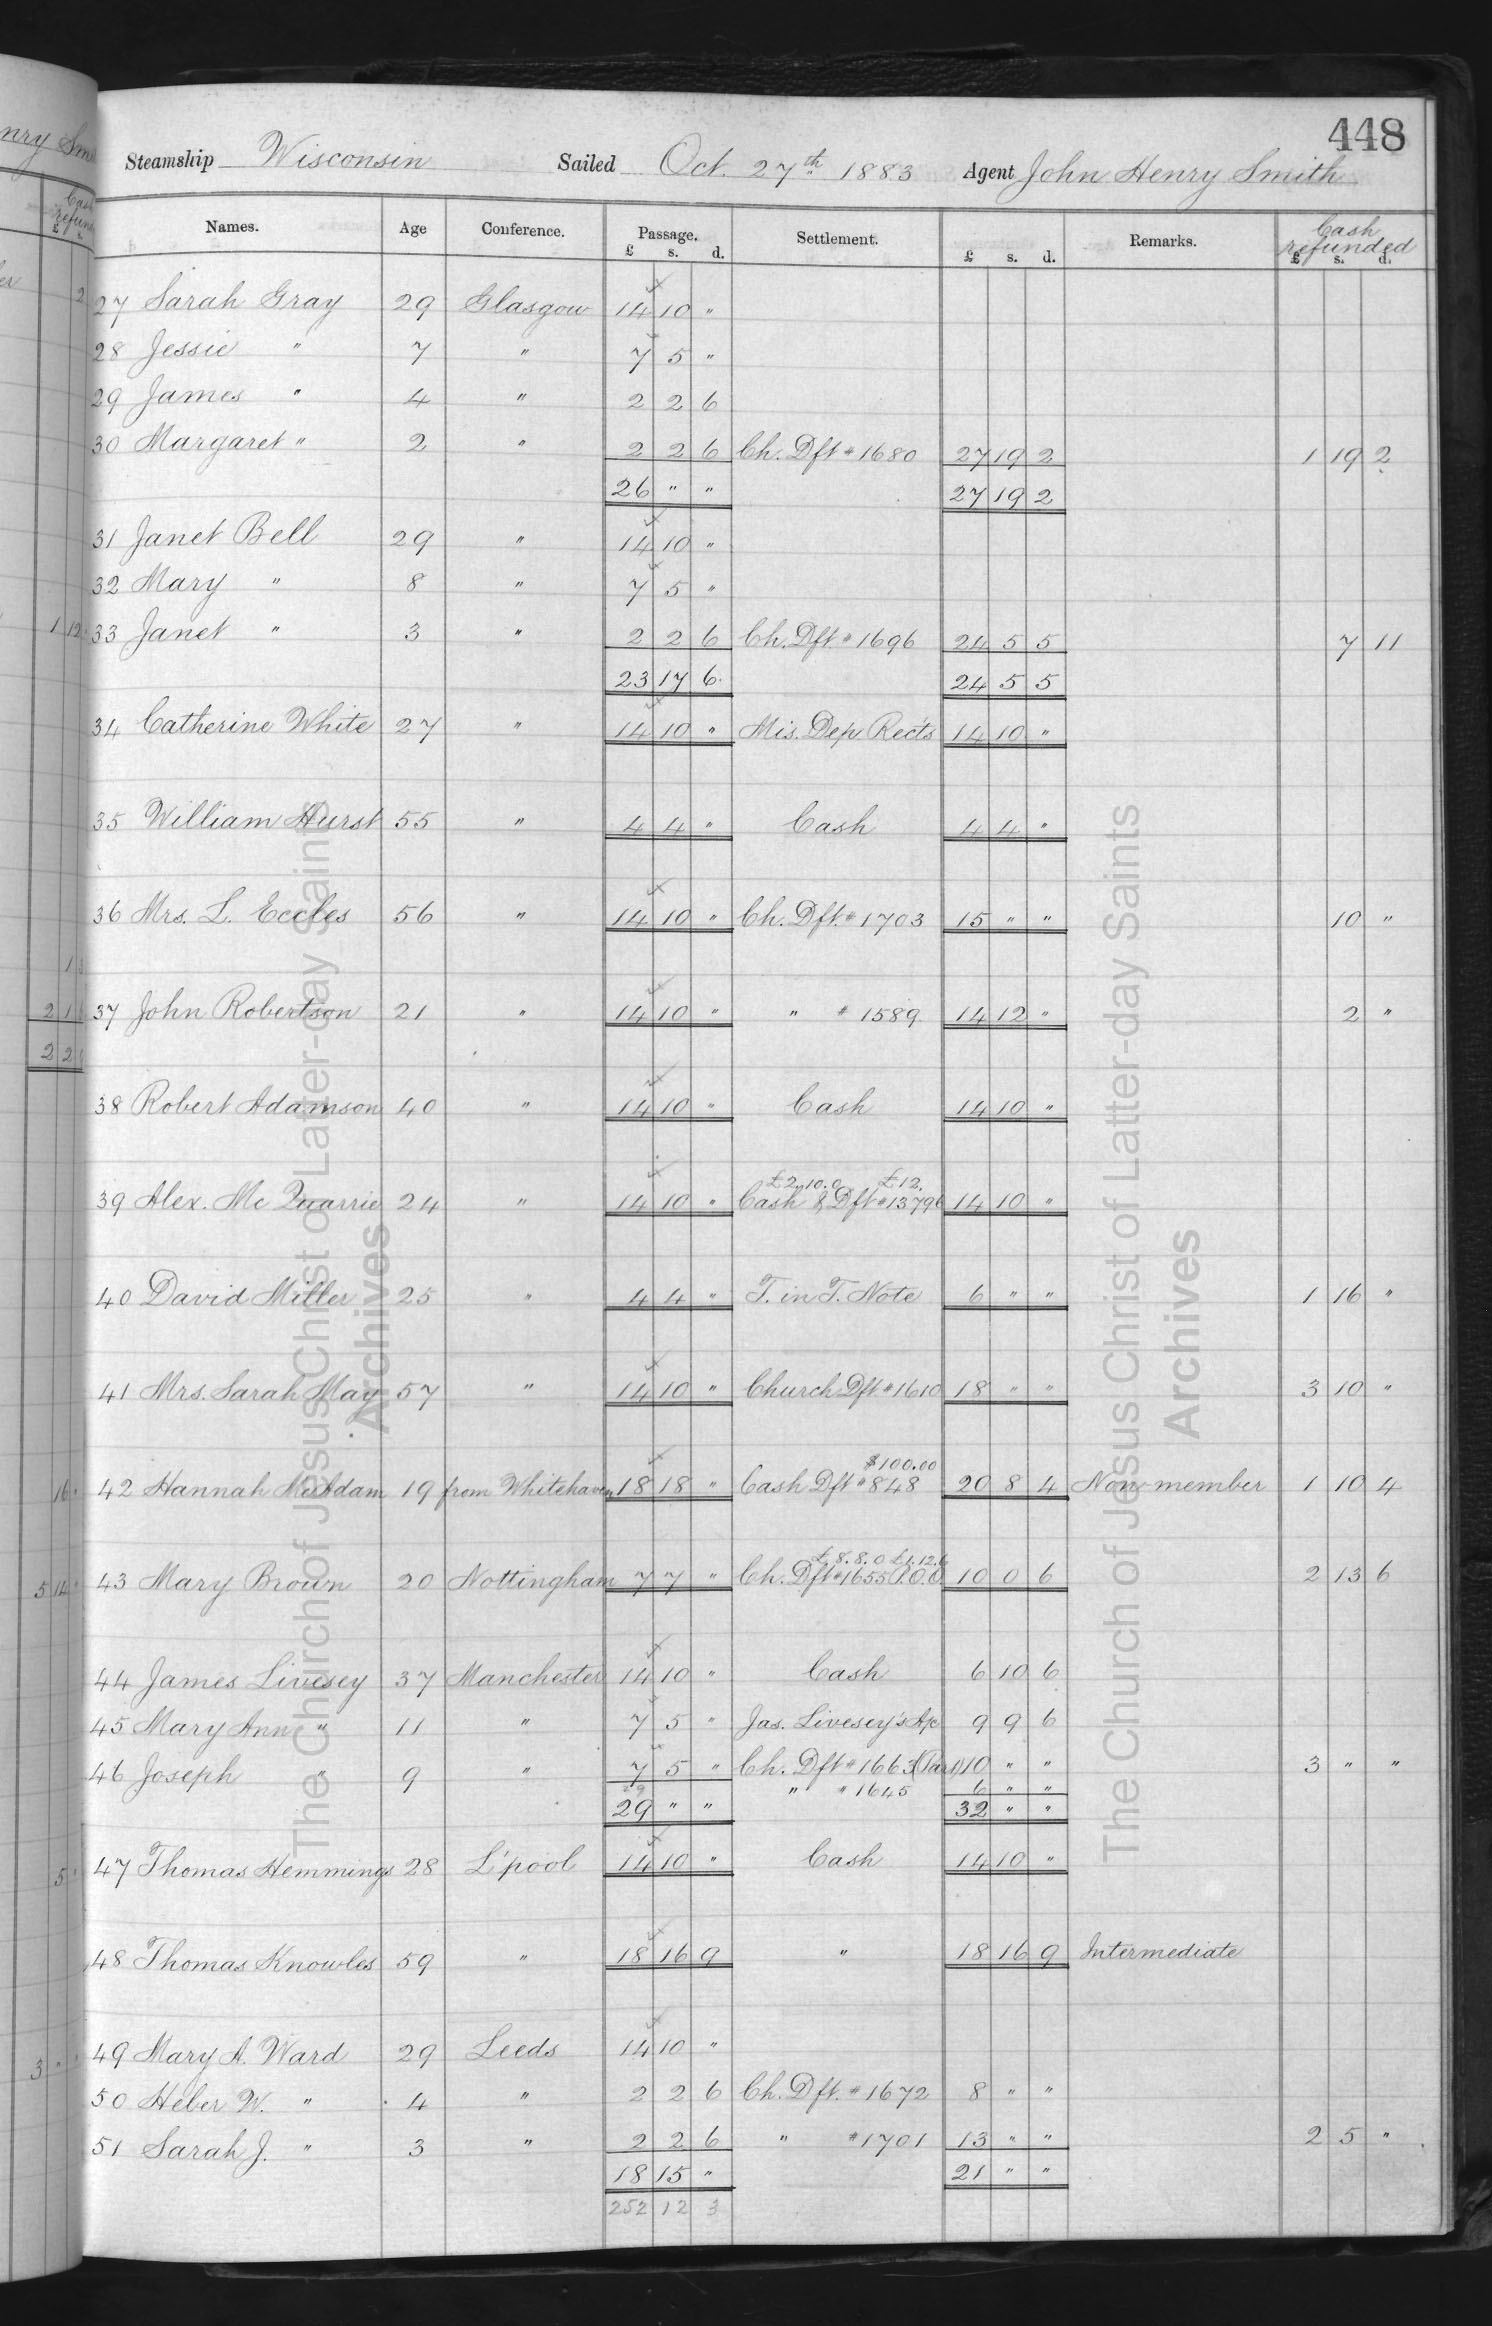 448
Steamship Wisconsin Sailed Oct. 27th 1883 Agent John Henry Smith
Names. Age Conference. Passage. Settlement. Remarks. Cash refunded
£ s. d. £ s. d. £ s. d.
27 Sarah Gray 29 Glasgow 14 10 "
28 Jessie " 7 " 7 5 "
29 James " 4 " 2 2 6
30 Margaret " 2 " 2 2 6 Ch. Dft # 1680 27 19 2 1 19 2
26 " " 27 19 2
31 Janet Bell 29 " 14 10 "
32 Mary " 8 " 7 5 "
33 Janet " 3 " 2 2 6 Ch. Dft # 1696 24 5 5 7 11
23 17 6 24 5 5
34 Catherine White 27 " 14 10 " Mis. Dep Rects 14 10 "
35 William Hurst 55 " 4 4 " Cash 4 4 "
36 Mrs. L. Eccles 56 " 14 10 " Ch. Dft. # 1703 15 " " 10 "
37 John Robertson 21 " 14 10 " " # 1589 14 12 " 2 "
38 Robert Adamson 40 " 14 10 " Cash 14 10 "
£2.10.0 £12.
39 Alex. Mc Quarrie 24 " 14 10 " Cash & Dft # 13796 14 10 "
40 David Miller 25 " 4 4 " T. in T. Note 6 " " 1 16 "
41 Mrs. Sarah May 57 " 14 10 " Church Dft # 1610 18 " " 3 10 "
$100.00
42 Hannah McAdam 19 from Whitehaven 18 18 " Cash Dft # 848 20 8 4 Non-member 1 10 4
£8.8.0 £1.12.6
43 Mary Brown 20 Nottingham 7 7 " Ch. Dft # 1655 P.O.O 10 0 6 2 13 6
44 James Livesey 37 Manchester 14 10 " Cash 6 10 6
45 Mary Ann " 11 " 7 5 " Jas. Livesey's A/c 9 9 6
46 Joseph " 9 " 7 5 " Ch. Dft # 1663 (Part) 10 " " 3 " "
29 " # 1645 6 " "
29 " " 32 " "
47 Thomas Hemmings 28 L'pool 14 10 " Cash 14 10 "
48 Thomas Knowles 59 " 18 16 9 " 18 16 9 Intermediate
49 Mary A. Ward 29 Leeds 14 10 "
50 Heber W. " 4 " 2 2 6 Ch. Dft. # 1672 8 " "
51 Sarah J. " 3 " 2 2 6 " # 1701 13 " " 2 5 "
18 15 " 21 " "
252 12 3
The Church of Jesus Christ of Latter-day Saints
Archives
The Church of Jesus Christ of Latter-day Saints
Archives